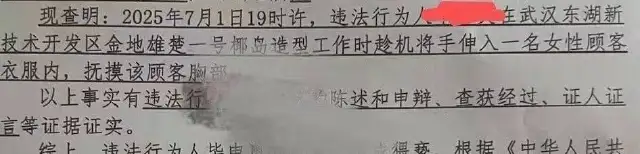 现查明：2025年7月1日19时许，违法行为人 在武汉东湖新
技术开发区金地雄楚一号椰岛造型工作时趁机将手伸入一名女性顾客
衣服内，抚摸该顾客胸部
以上事实有违法行 陈述和申辩、查获经过、证人证
言等证据证实。
综上，违法行为人 猥亵，根据《中华人民共